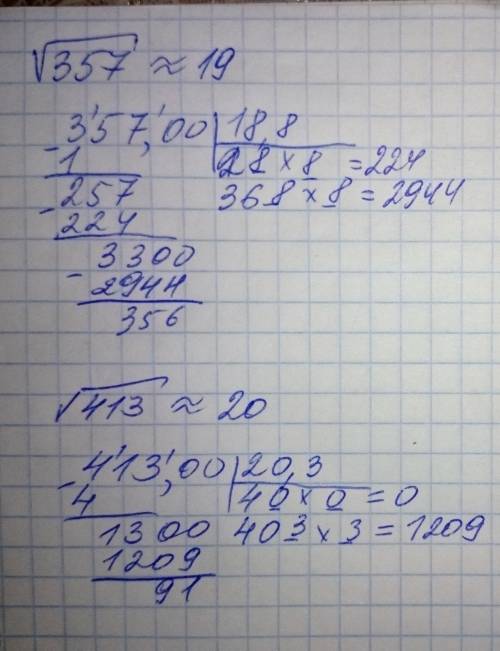 √357 ≈ 19
3'57,'00 | 18,8
- 1 28 × 8 = 224
257 368 × 8 = 2944
- 224
3300
- 2944
356
√413 ≈ 20
- 4'13,'00 | 20,3
4 40 × 0 = 0
1300 403 × 3 = 1209
1209
91